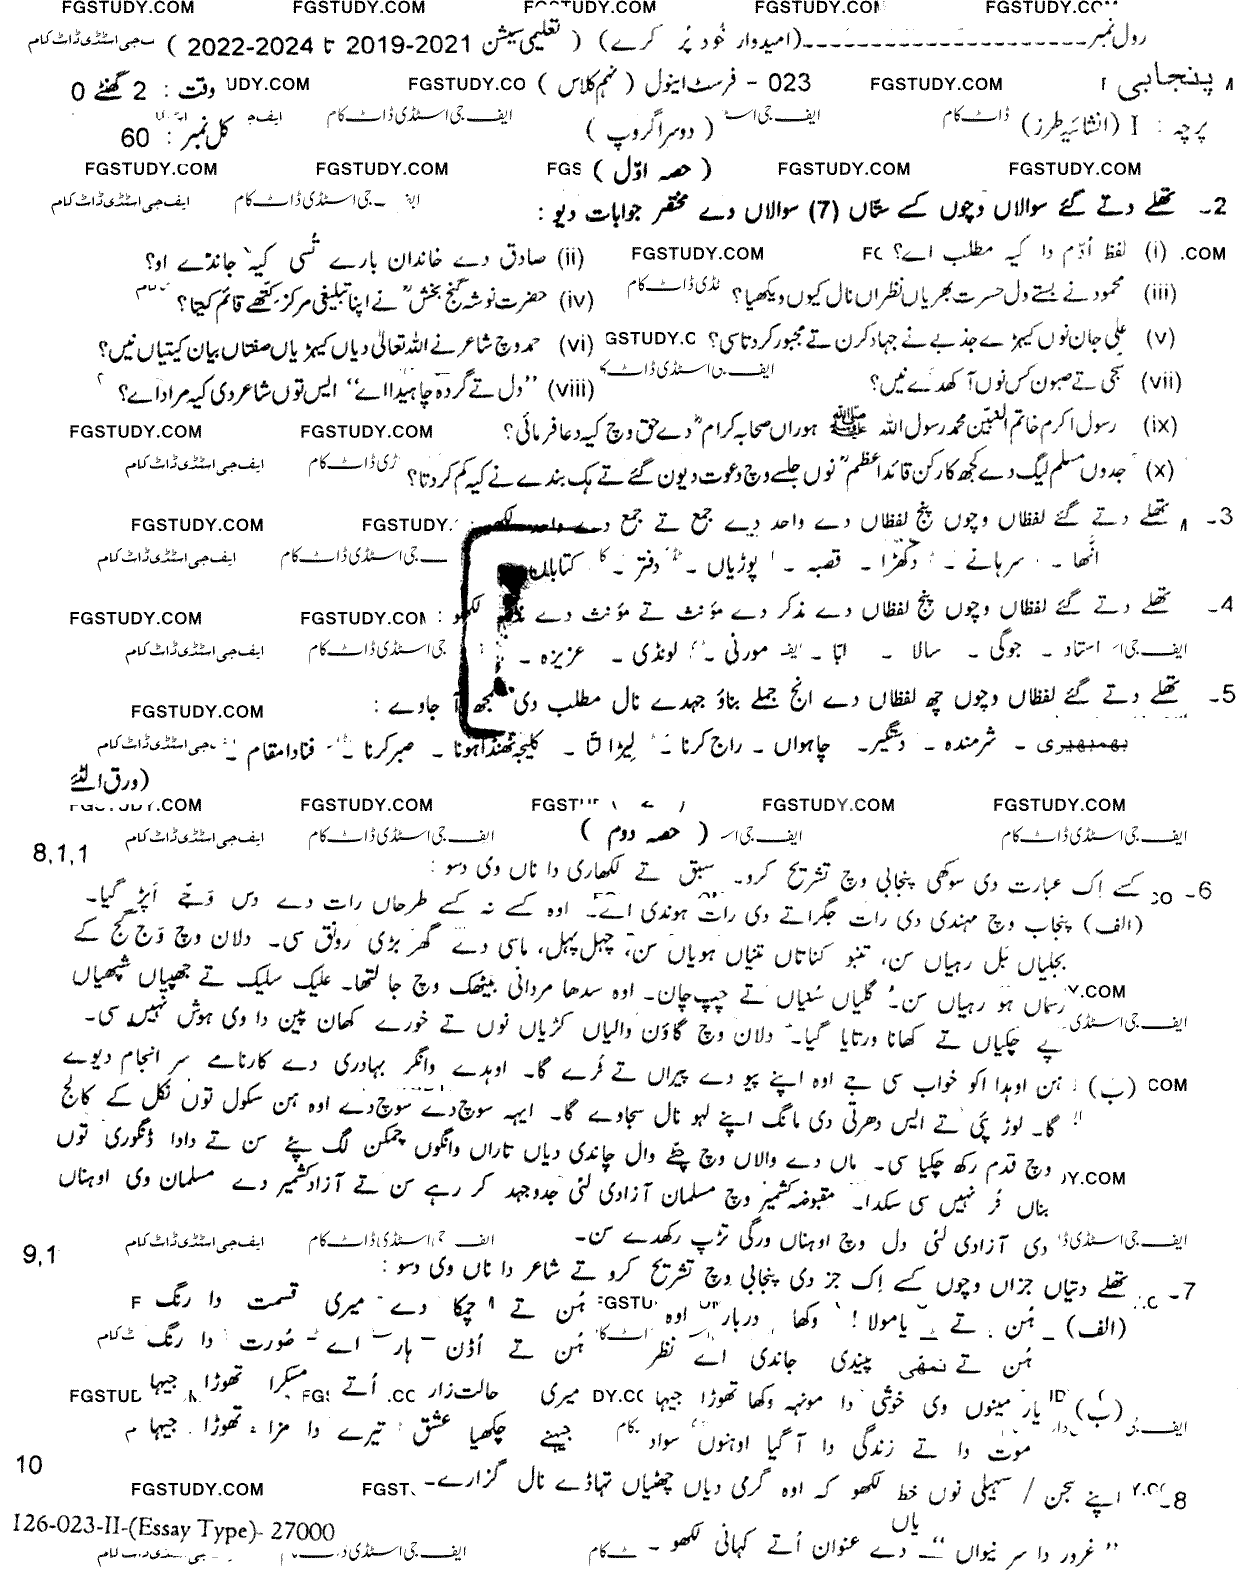 FGSTUDY.COM FGSTUDY.COM FGSTUDY.COM FGSTUDY.COM FGSTUDY.COM
رول نمبر ــــــــــــــــــ (امیدوار خُود پُر کرے) ( تعلیمی سیشن 2021-2019 تا 2024-2022 )
پنجابی 023 - فرسٹ اینول ( نہم کلاس ) وقت : 2 گھنٹے
FGSTUDY.COM FGSTUDY.CO UDY.COM
پرچہ : I (انشائیہ طرز) ( دوسرا گروپ ) کل نمبر : 60
FGSTUDY.COM FGSTUDY.COM ( حصہ اوّل ) FGSTUDY.COM FGSTUDY.COM
2۔ تھلے دتے گئے سوالاں وچوں کے ستّاں (7) سوالاں دے مختصر جوابات دیو :
(i) لفظ اُدّم دا کیہ مطلب اے؟ (ii) صادق دے خاندان بارے تُسی کیہ جاندے او؟
(iii) محمود نے بستے ول حسرت بھریاں نظراں نال کیوں ویکھیا؟ (iv) حضرت نوشہ گنج بخشؒ نے اپنا تبلیغی مرکز کتھے قائم کیتا؟
(v) علی جان نوں کیہڑے جذبے نے جہاد کرن تے مجبور کردتا سی؟ (vi) حمد وچ شاعر نے اللہ تعالیٰ دیاں کیہڑیاں صفتاں بیان کیتیاں نیں؟
(vii) سجی تے صبون کس نوں آکھدے نیں؟ (viii) "دل تے گردہ چاہیدا اے" ایس توں شاعر دی کیہ مراد اے؟
(ix) رسول اکرم خاتم النبیّن محمد رسول اللہ ﷺ ہوراں صحابہ کرامؓ دے حق وچ کیہ دعا فرمائی؟
FGSTUDY.COM FGSTUDY.COM
(x) جدوں مسلم لیگ دے کجھ کارکن قائداعظمؒ نوں جلسے وچ دعوت دیون گئے تے ہک بندے نے کیہ کم کردتا؟
3۔ تھلے دتے گئے لفظاں وچوں پنج لفظاں دے واحد دے جمع تے جمع دے واحد لکھو :
FGSTUDY.COM FGSTUDY.
انّھا ۔ سرہانے ۔ دکھڑا ۔ قصبہ ۔ پوڑیاں ۔ دفتر ۔ کتاباں
4۔ تھلے دتے گئے لفظاں وچوں پنج لفظاں دے مذکر دے مؤنث تے مؤنث دے مذکر لکھو :
FGSTUDY.COM FGSTUDY.COM
استاد ۔ جوگی ۔ سالا ۔ ابّا ۔ مورنی ۔ لونڈی ۔ عزیزہ ۔
5۔ تھلے دتے گئے لفظاں وچوں چھ لفظاں دے انج جملے بناؤ جہدے نال مطلب دی سمجھ آ جاوے :
FGSTUDY.COM
بھمبھیری ۔ شرمندہ ۔ دستگیر۔ چاہواں ۔ راج کرنا ۔ لیڑا لتّا ۔ کلیجہ ٹھنڈا ہونا ۔ صبر کرنا ۔ فنا دا مقام ۔
(ورق الٹئے
FGSTUDY.COM FGSTUDY.COM FGSTUDY.COM FGSTUDY.COM
( حصہ دوم )
8,1,1
6۔ کسے اِک عبارت دی سوکھی پنجابی وچ تشریح کرو۔ سبق تے لکھاری دا ناں وی دسو :
(الف) پنجاب وچ مہندی دی رات جگراتے دی رات ہوندی اے۔ اوہ کسے نہ کسے طرحاں رات دے دس وَجے اَپڑ گیا۔
بجلیاں بَل رہیاں سَن، تنبو کناتاں تنیاں ہویاں سَن، چہل پہل، ماسی دے گھر بڑی رونق سی۔ دلان وچ وَج گَج کے
رسماں ہو رہیاں سَن۔ گلیاں سُنیاں تے چپ چان۔ اوہ سدھا مردانی بیٹھک وچ جا لتھا۔ علیک سلیک تے جپھیاں شپھیاں
پے چکیاں تے کھانا ورتایا گیا۔ دلان وچ گاؤن والیاں کڑیاں نوں تے خورے کھان پین دا وی ہوش نہیں سی۔
(ب) ہن اوہدا اکو خواب سی جے اوہ اپنے پیو دے پیراں تے ٹرے گا۔ اوہدے وانگر بہادری دے کارنامے سر انجام دیوے
گا۔ لوڑ پئی تے ایس دھرتی دی مانگ اپنے لہو نال سجاوے گا۔ ایہہ سوچدے سوچدے اوہ ہن سکول توں نکل کے کالج
وچ قدم رکھ چکیا سی۔ ماں دے والاں وچ چٹّے وال چاندی دیاں تاراں وانگوں چمکن لگ پئے سن تے دادا ڈنگوری توں
بناں ٹر نہیں سی سکدا۔ مقبوضہ کشمیر وچ مسلمان آزادی لئی جدوجہد کر رہے سن تے آزاد کشمیر دے مسلمان وی اوہناں
دی آزادی لئی دل وچ اوہناں ورگی تڑپ رکھدے سن۔
9,1
7۔ تھلے دتیاں جزاں وچوں کسے اِک جز دی پنجابی وچ تشریح کرو تے شاعر دا ناں وی دسو :
(الف) ہُن تے یا مولا ! وکھا دربار اوہ ہُن تے چمکا دے میری قسمت دا رنگ
ہُن تے پیندی جاندی اے نظر ہُن تے اُڈن ہار اے صُورت دا رنگ
(ب) یار مینوں وی خوشی دا مونہہ وکھا تھوڑا جیہا میری حالت زار اُتے مسکرا تھوڑا جیہا
موت دا تے زندگی دا آ گیا اوہنوں سواد جیہنے چکھیا عشق تیرے دا مزا تھوڑا جیہا
10
8۔ اپنے سجن / سہیلی نوں خط لکھو کہ اوہ گرمی دیاں چھٹیاں تہاڈے نال گزارے۔
FGSTUDY.COM
یاں
126-023-II-(Essay Type)- 27000
"غرور دا سر نیواں" دے عنوان اُتے کہانی لکھو ۔